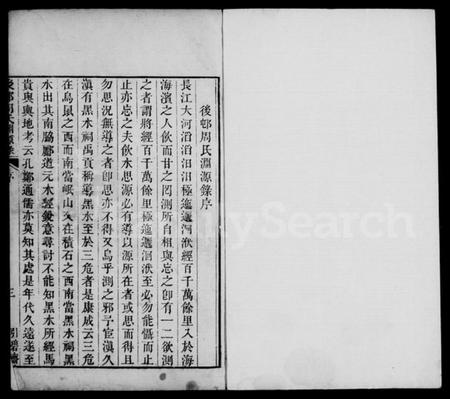 後邨周氏淵源錄序
長江大河滔滔汨汨經百千萬餘里入於海
海濱之人飲而甘之罔測所自相與忘之卽有一二欲測
之者謂將經百千萬餘里極迤邐洄洑至必勿能慨而止
止亦忘之夫飲水思源必有導以源所在者或思而得且
勿思況無導之者卽思亦不得又烏乎測之邪予宦滇久
滇有黑水祠禹貢稱導黑水至於三危者是康成云三危
在鳥鼠之西而南當岷山又在積石之西南當黑水祠黑
水出其南脇酈道元水經鋟意尋討不能知黑水所經馬
貴與輿地考云孔鄭通儒亦莫知其處是年代久遠遂至
後邨周氏淵源錄
序
三
FamilySearch